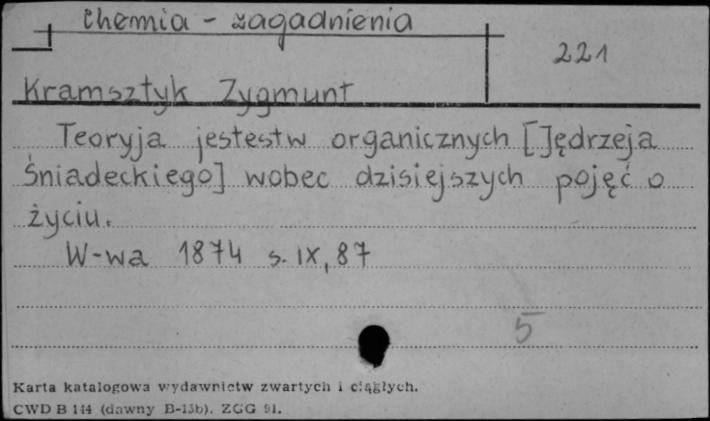 Chemia - zagadnienia
221
Kramsztyk Zygmunt
Teoryja jestestw organicznych [Jędrzeja
Śniadeckiego] wobec dzisiejszych pojęć o
życiu.
W-wa 1874 s. IX, 87
5
Karta katalogowa wydawnictw zwartych i ciągłych.
CWD B 144 (dawny B-13b). ZGG 91.